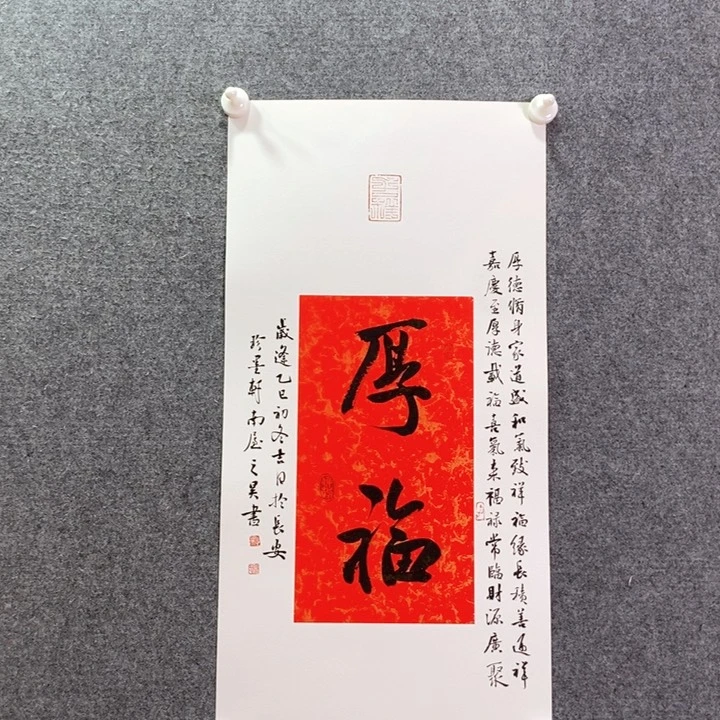 厚福
厚德脩身家道盛和氣致祥福緣長積善通祥
嘉慶至厚德載福喜氣來福祿常臨財源廣聚
歲逢乙巳初冬吉日於長安
墨軒南屋之昊書